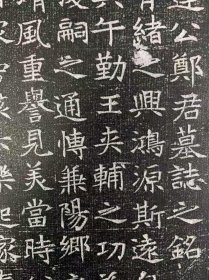 公鄭君墓誌之銘
緒之興鴻源斯遠
午勤王夾輔之功
嗣之通博兼陽鄉
風重譽見美當時
樂起家